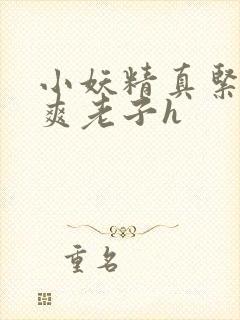 小妖精真紧
爽老子h
重名